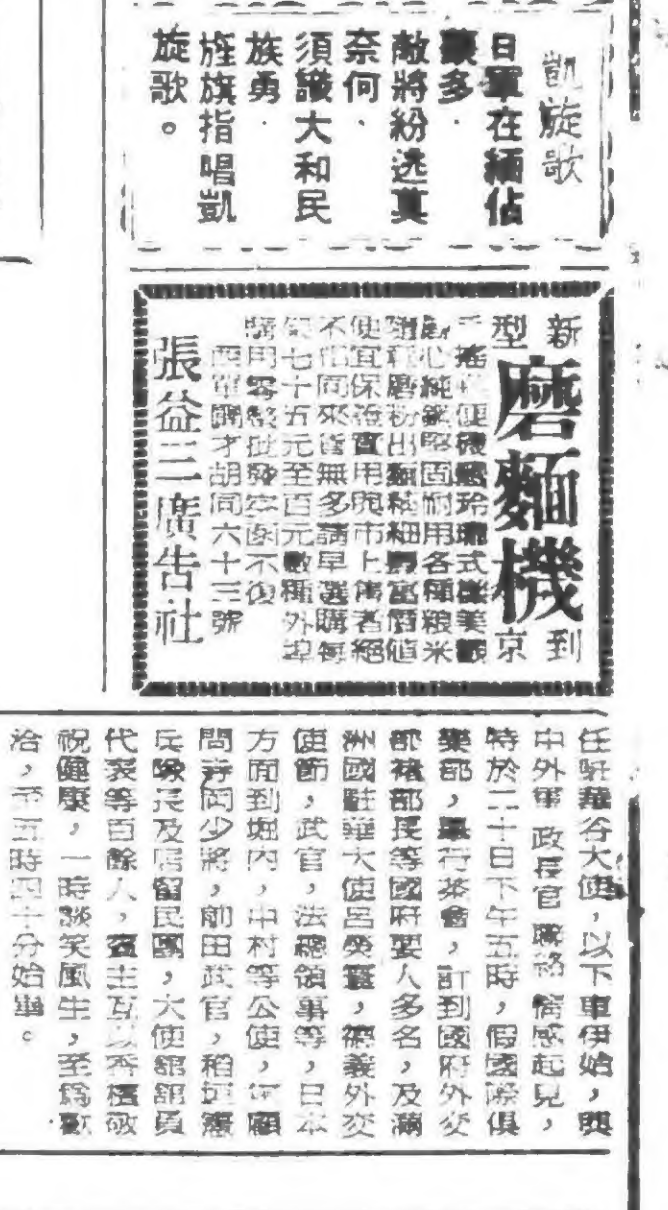 凱旋歌
日軍在緬佔
多．
敵將紛逃莫
奈何．
須讓大和民
族勇．
旌旗指唱凱
旋歌。
新型磨麵機到京
手搖　便機　玲瓏式樣美觀
心純鋼堅固耐用各種粮米
磨粉出麵　細　價值
便宜保　實用與市上售者絕
不相同來貨無多請早選購每
架七十五元至百元數種外埠
購用零整批發空函不復
西單關才胡同六十三號
張益三廣告社
任駐華谷大使，以下車伊始，與
中外軍　政長官　聯絡　情感起見，
特於二十日下午五時，假國際俱
樂部，舉行茶會，計到國府外交
部褚部長等國府要人多名，及滿
洲國駐華大使呂榮寰，德義外交
使節，武官，法總領事等，日本
方面到堀內，中村等公使，　顧
問寺岡少將，前田武官，稻垣憲
兵隊長及居留民團，大使館館員
代表等百餘人，賓主互以香檳敬
祝健康，一時談笑風生，至為歡
洽，至五時四十分始畢。